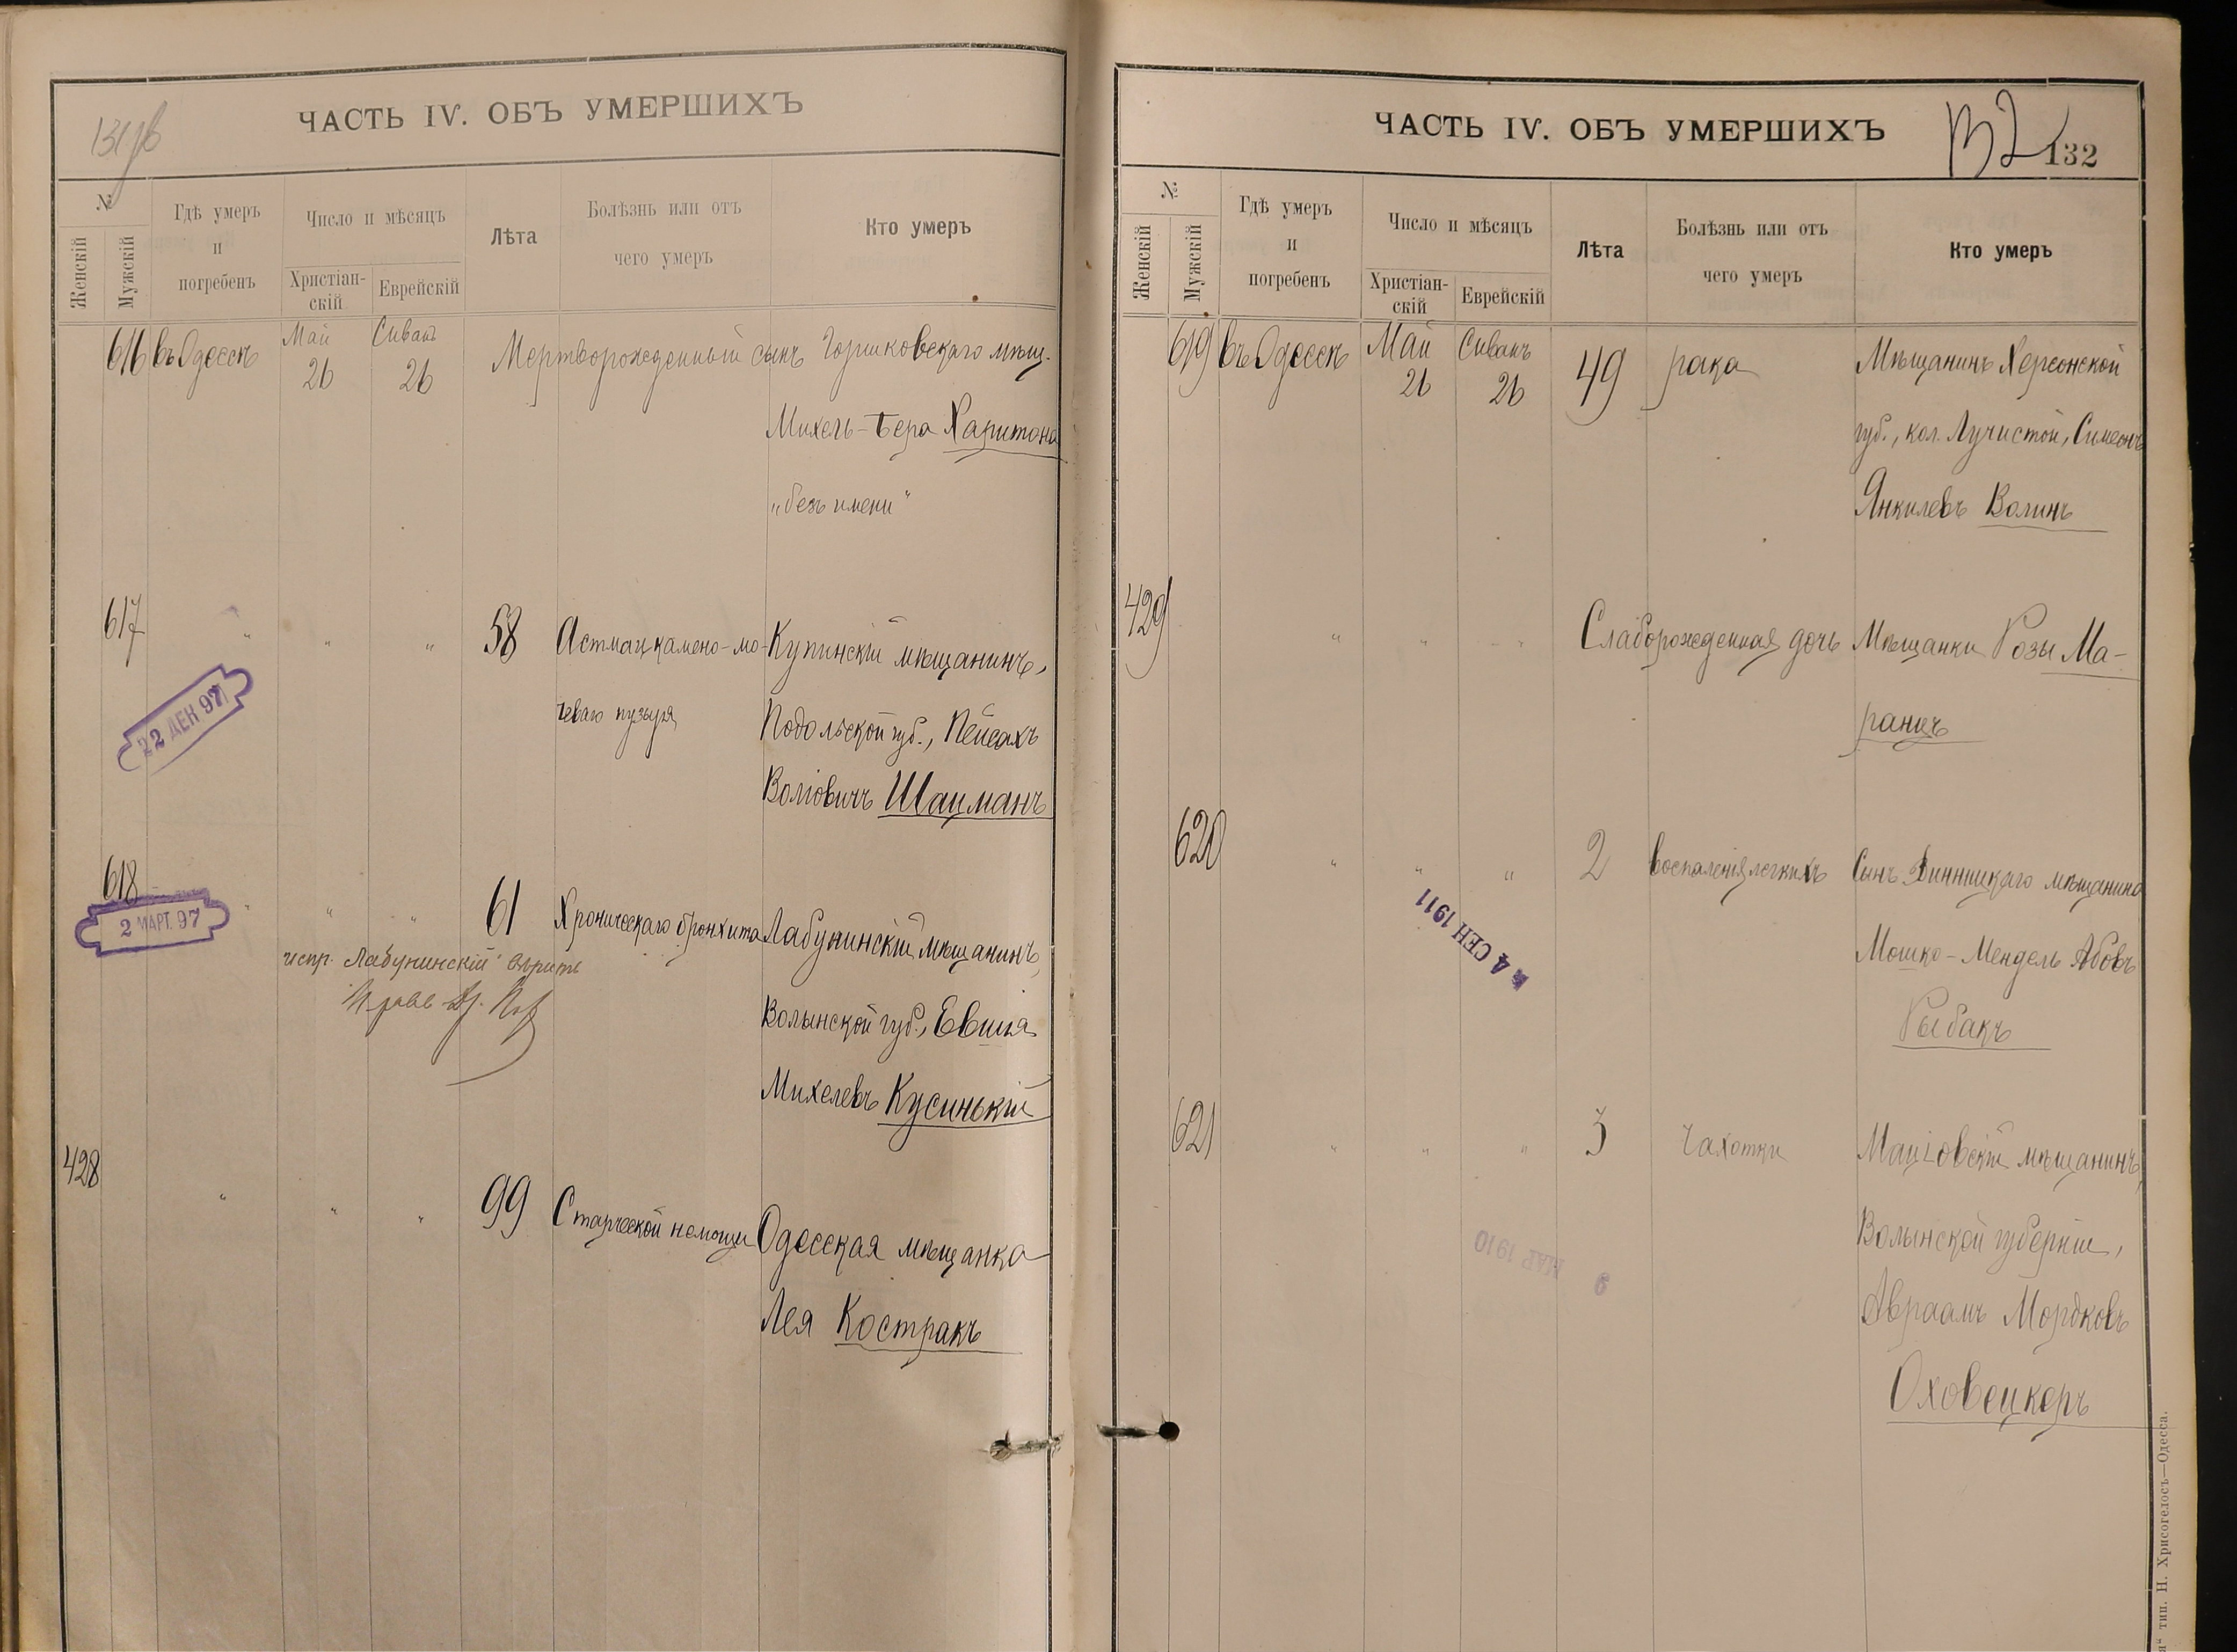 131 об
ЧАСТЬ IV. ОБЪ УМЕРШИХЪ
№
Женскій
Мужскій
Гдѣ умеръ
и
погребенъ
Число и мѣсяцъ
Христіан-
скій
Еврейскій
Лѣта
Болѣзнь или отъ
чего умеръ
Кто умеръ
616 въ Одессѣ Май 26 Сиванъ 26 Мертворожденный сынъ Горшковскаго мѣщ.
Михель-Бера Харитона
„безъ имени“
617 " " " 58 Астмы и камено-мо- Купинскій мѣщанинъ,
чеваго пузыря Подольской губ., Пейсахъ
22 ДЕК 97
Волковичъ Шацманъ
618 " " " 61 Хроническаго бронхита Лабунинскій мѣщанинъ,
2 МАРТ. 97
испр. „Лабунинскій“ вѣрить
Волынской губ.,
Михелевъ Кусинькій
428 " " " 99 Старческой немощи Одесская мѣщанка
Лея Костракъ
ЧАСТЬ IV. ОБЪ УМЕРШИХЪ
132
132
№
Женскій
Мужскій
Гдѣ умеръ
и
погребенъ
Число и мѣсяцъ
Христіан-
скій
Еврейскій
Лѣта
Болѣзнь или отъ
чего умеръ
Кто умеръ
619 въ Одессѣ Май 26 Сиванъ 26 49 рака Мѣщанинъ Херсонской
губ., кол. Лучистой, Симеонъ
Янкилевъ Волинъ
429 " " " Слаборожденная дочь Мѣщанки Розы Ма-
ранцъ
620 " " " 2 воспаленія легкихъ Сынъ Винницкаго мѣщанина
4 СЕН 1911
Мошко-Мендель Абовъ
Рыбакъ
621 " " " 3 Чахотки Маціовскій мѣщанинъ,
Волынской губерніи,
9 МАР. 1910
Авраамъ Мордковъ
Оховецкеръ
тип. Н. Хрисогелосъ—Одесса.